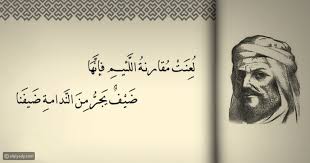 لُعِنَتْ مُقارنةُ اللَّئيــمِ فإنَّهَا
ضَيْفٌ يَجرُّ مِنَ النَّدامةِ ضَيفَنا